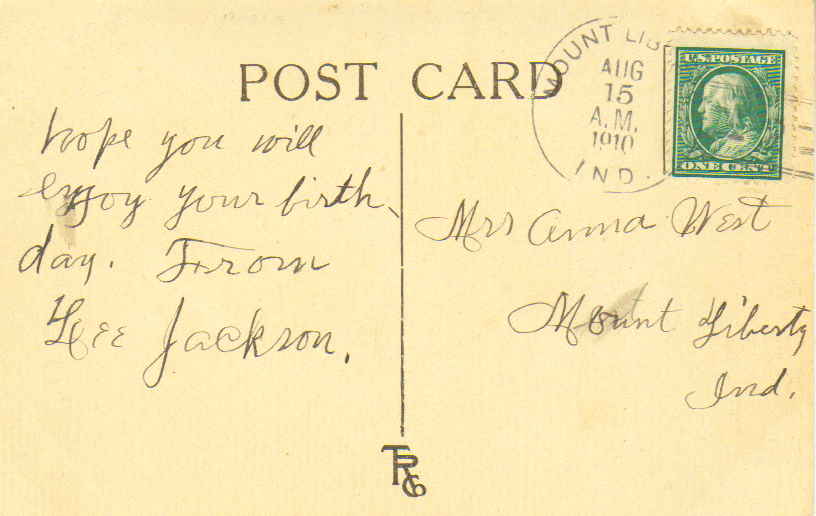 POST CARD
MOUNT LIB
AUG
15
A.M.
1910
IND.
U.S. POSTAGE
ONE CENT
hope you will
enjoy your birth-
day. From
Lee Jackson.
Mrs Anna West
Mount Liberty
Ind.
TRCo